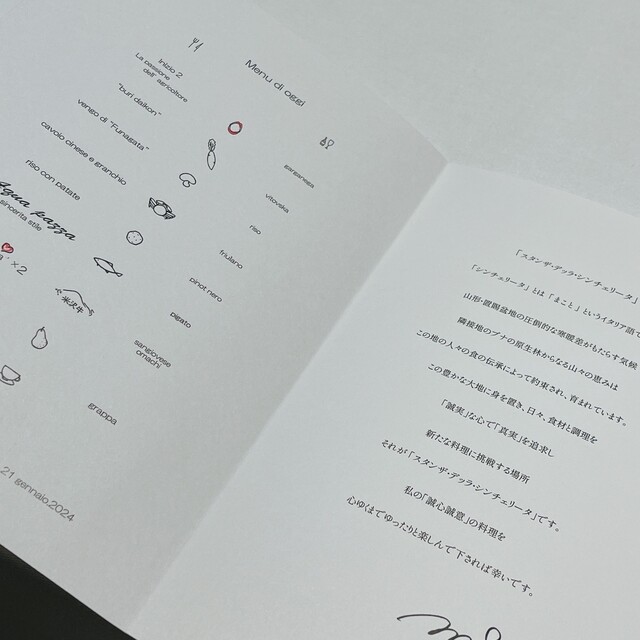 Menu di oggi
Inizio 2
La passione
dell' agricoltore
"buri daikon"
vengo di "Funagata"
cavolo cinese e granchio
riso con patate
Aqua pazza
sincerita stile
×2
米沢牛
sangaresa
vitovska
riso
friulano
pinot nero
pigato
sangiovese
omachi
grappa
21 gennaio.2024
「スタンザ・デッラ・シンチェリータ」
「シンチェリータ」とは「まこと」というイタリア語で
山形・置賜盆地の圧倒的な寒暖差がもたらす気候
隣接地のブナの原生林からなる山々の恵みは
この地の人々の食の伝承によって約束され、育まれています。
この豊かな大地に身を置き、日々、食材と調理を
「誠実」な心で「真実」を追求し
新たな料理に挑戦する場所
それが「スタンザ・デッラ・シンチェリータ」です。
私の「誠心誠意」の料理を
心ゆくまでゆったりと楽しんで下されば幸いです。